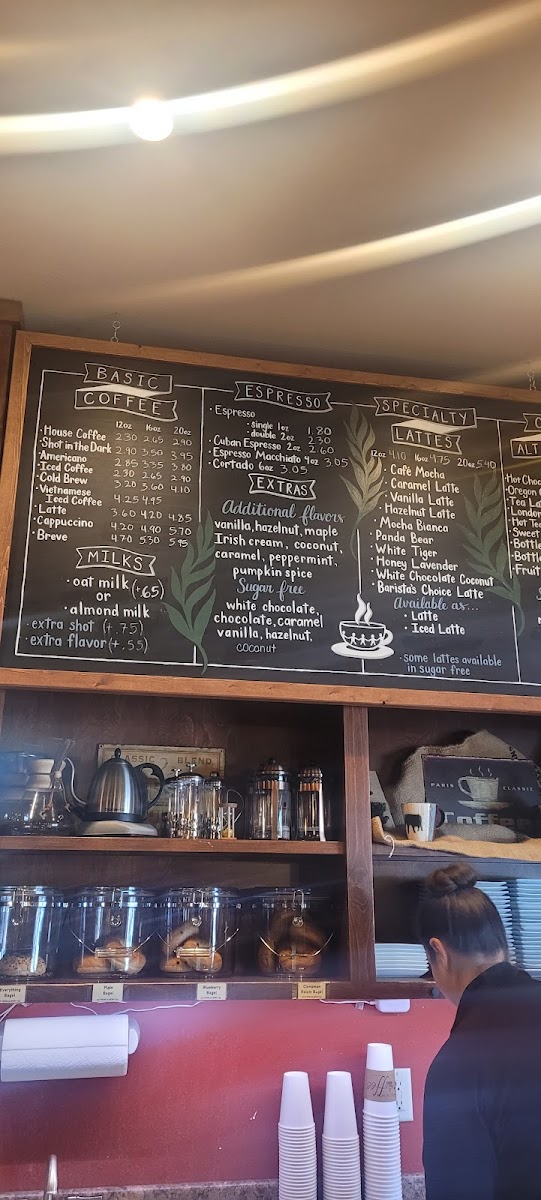 BASIC
COFFEE
12oz 16oz 20oz
• House Coffee 2.30 2.65 2.90
• Shot in the Dark 2.90 3.50 3.95
• Americano 2.85 3.35 3.80
• Iced Coffee 2.30 2.65 2.90
• Cold Brew 3.20 3.60 4.10
• Vietnamese
Iced Coffee 4.25 4.95
• Latte 3.60 4.20 4.85
• Cappuccino 4.20 4.90 5.70
• Breve 4.70 5.30 5.95
MILKS
• oat milk (+.65)
or
• almond milk
• extra shot (+.75)
• extra flavor (+.55)
ESPRESSO
• Espresso
• single 1oz 1.80
• double 2oz 2.30
• Cuban Espresso 2oz 2.60
• Espresso Macchiato 4oz 3.05
• Cortado 6oz 3.05
EXTRAS
Additional flavors
vanilla, hazelnut, maple
Irish cream, coconut,
caramel, peppermint,
pumpkin spice
Sugar free
white chocolate,
chocolate, caramel
vanilla, hazelnut,
coconut
SPECIALTY
LATTES
12oz 4.10 16oz 4.75 20oz 5.40
• Café Mocha
• Caramel Latte
• Vanilla Latte
• Hazelnut Latte
• Mocha Bianca
• Panda Bear
• White Tiger
• Honey Lavender
• White Chocolate Coconut
• Barista's Choice Latte
Available as...
• Latte
• Iced Latte
• some lattes available
in sugar free
ALT
• Hot Choc
• Oregon
• Tea La
• London
• Hot Te
• Sweet
• Bottle
• Bottle
• Fruit
CLASSIC BLEND
PARIS CLASSIC
Coffee
Everything
Bagel
Plain
Bagel
Blueberry
Bagel
Cinnamon
Raisin Bagel